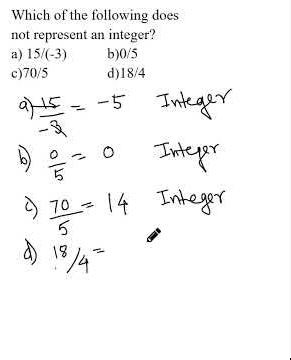 Which of the following does
not represent an integer?
a) 15/(-3) b)0/5
c)70/5 d)18/4
a) 15/-3 = -5 Integer
b) 0/5 = 0 Integer
c) 70/5 = 14 Integer
d) 18/4 =